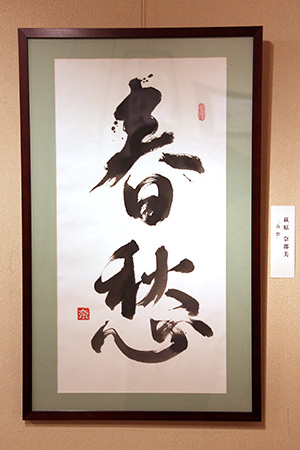 春
愁
奈
萩原 奈都美
「春愁」